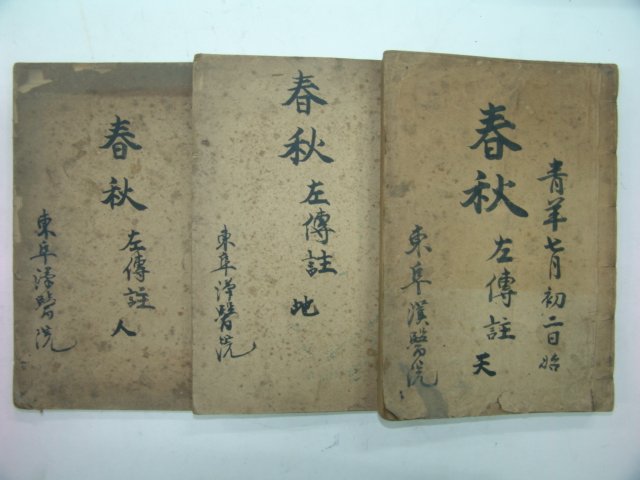 青羊七月初二日始
春秋 左傳註 天
東阜漢醫院
春秋 左傳註 地
東阜漢醫院
春秋 左傳註 人
東阜漢醫院